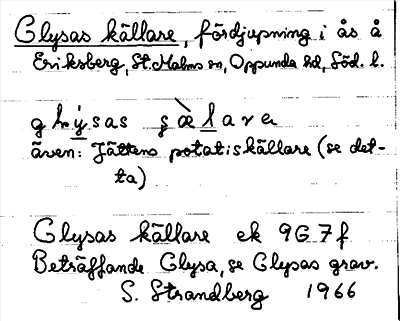 Glysas källare, fördjupning i ås å
Eriksberg, St. Malms sn, Oppunda hd, Söd. l.
även: Jättens potatiskällare (se det-
ta)
Glysas källare ek 9G 7f
Beträffande Glysa, se Glysas grav.
S. Strandberg 1966